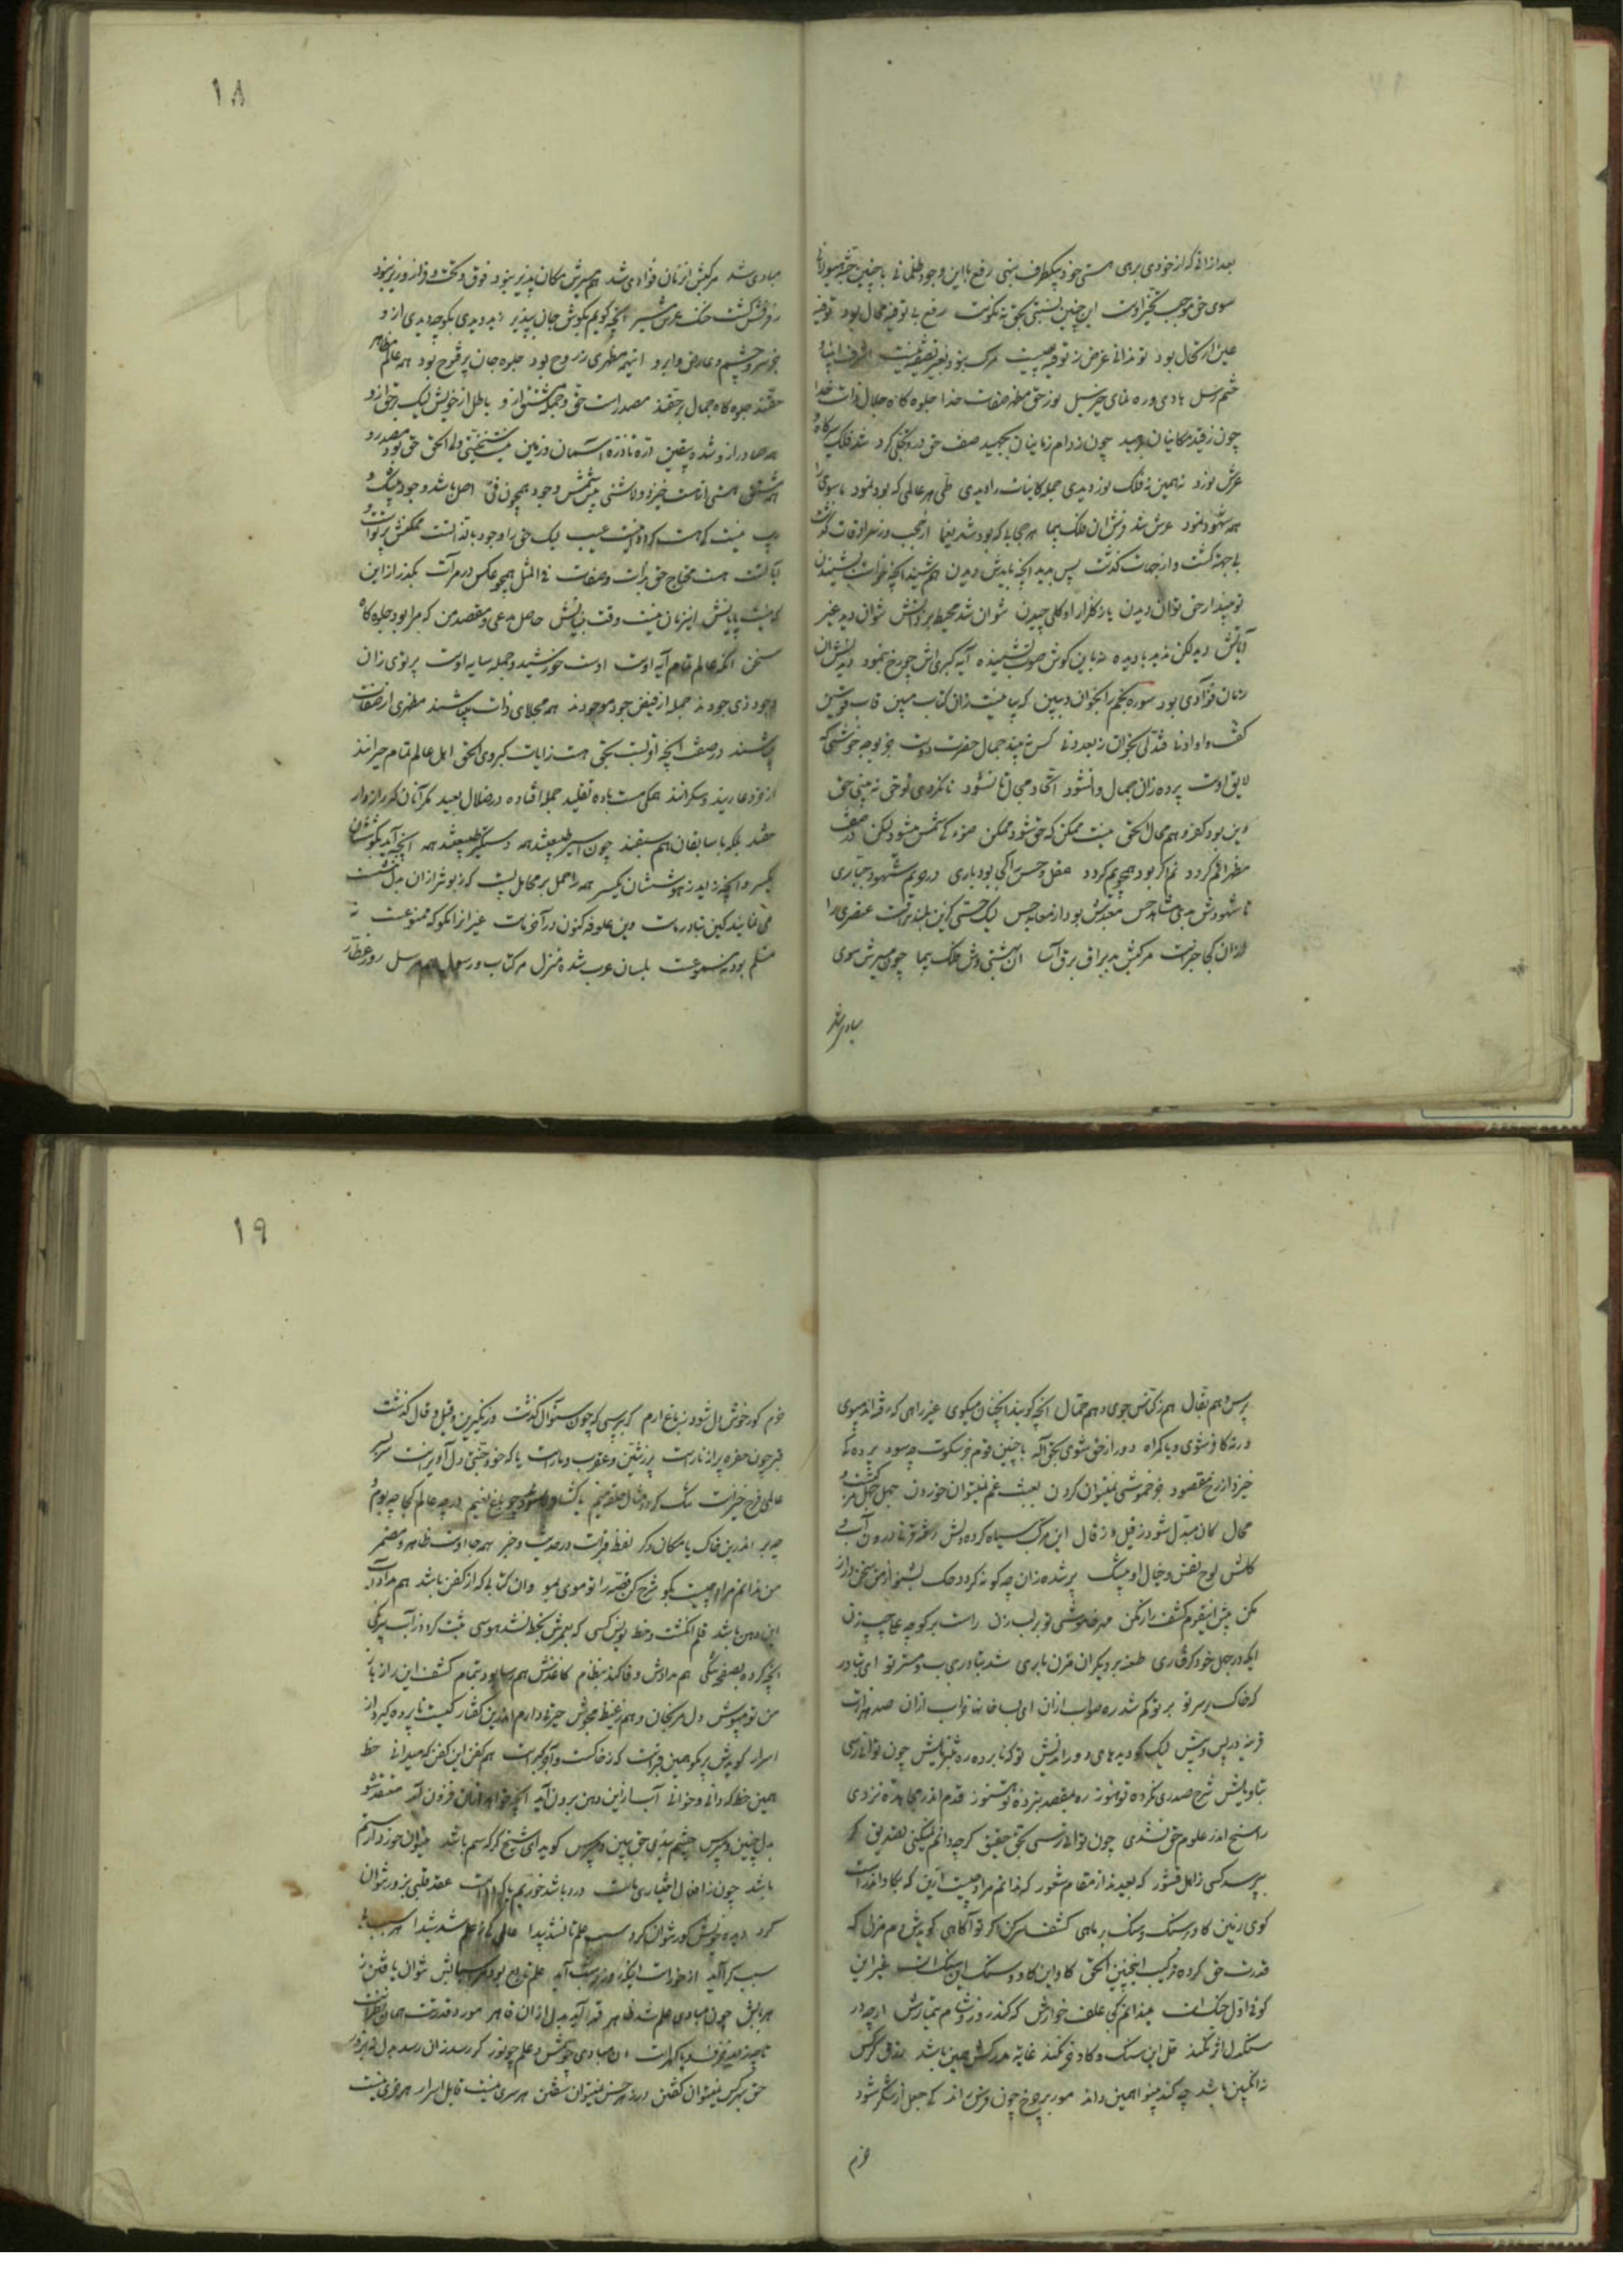 ۱۸
بعد ازانی که از خودی برهی هستی خود بیکطرف بنهی رفع با این وجود ظلمانی با چنین
سوی حق موجب تحیر اوست این چنین نسبتی بحق نه نکوست رفع بی توفیه محال بود توفیه
عین ارتحال بود تو ندانی غرض ز توفیه چیست مرگ نبود بغیر تصفیه نیست اشرف انبیا و
ختم رسل هادی و ره نمای خیر سبل نور حق مظهر صفات خدا جلوه کاه جلال ذات خدا
چون ز قید مکانیان برهید چون ز دام زمانیان بجهید صف حق درو تجلی کرد شد فلک
عرش نورد نه همین نه فلک نوردیدی جمله کاینات را دیدی طی هر عالمی که بود نمود ماسوی را
همه شهود نمود عرش شد فرش ان فلک پیما هر حجابی که بود شد یغما از حجب وز سرادقات گذشت
بی جهه گشت و از جهات گذشت پس بدید انچه بایدش دیدن هم شنید انچه خواست بشنیدن
تو مپندار حق توان دیدن یا ز گلزار او گلی چیدن نتوان شد محیط بر ذاتش نتوان دید غیر
آیاتش دید لکن ندید با دیده نه باین گوش صوت بشنیده آیه کبری اش چو رخ بنمود دیدنش ان
زمان فوآدی بود سوره نجم را بخوان و ببین که بیانیست زان کتاب مبین قاب قوسین
گفت و او ادنا فتدلی بخوان ز بعد دنا کس نبیند جمال حضرت دوست جز بوجه خوشی که
لایق اوست پرده زان جمال وا نشود اتحاد میان تا نشود تا نگردی تو حق نه بینی حق
وین بود کفر و هم محال الحق نیست ممکن که حق شود ممکن ضوء کی شمس میشود لیکن در صف
مظهر اتم گردد نم اگر بود همچو یم گردد عقل و حس را کجا بود باری در حریم شهود جباری
تا شهودش بدی مشاهد حس معتدش بود از معابد حس لیک حسی کزین بلندتر است عنصری را
ازان کجا خبر است مرکبش بد براق برق آسا ان بهشتی وش فلک پیما چون مسیرش سوی
مبادی شد
مبادی شد مرکبش انزمان فوادی شد هم مسیرش مکان پذیر نبود فوق و تحت و فراز و زیر نبود
رفرفش گشت خنک عرش مسیر انچه گویم بگوش جان بپذیر دید دیدی بگو چه دیدی از و
بجز سر و چشم و عارض و ابرو اینهمه مظهری ز روح بود جلوه جان پر فتوح بود همه عالم مظاهر
حقند جلوه گاه جمال بر حقند مصدر است حق و جمله مشتق از و باطل از خویش لیک بر حق از و
همه صادر از و شده بیقین ذره تا ذره آسمان و زمین نیست مشتقی ولی الحق حق بود مصدر و
همه مشتق هستی از هست خیزد و لا شئی نیستش وجود همچون فی اصل باشد وجود بیشک و
ریب نیست که هست کرد و نیست عیب لیک حق را وجود بالذاتست ممکنش پرتوی است و
بآلت است محتاج حق بذات و صفات فی المثل همچو عکس در مرآت بگذر از این
که نیست پایانش اینزمان نیست وقت بیانش حاصل مدعی و مقصد من که مرا بود جلوه گاه
سخن انکه عالم تمام آیه اوست اوست خورشید و جمله سایه اوست پرتوی زان
وجود ذی جودند جمله از فیض جود موجودند همه مجلای ذات بیباشند مظهری از صفات
باشند در صف انچه اولیست بحق هست ز ایات کبروی الحق اهل عالم تمام حیرانند
از خرد عاریند و سکرانند همگی مست باده تقلید جمله افتاده در ضلال بعید مگر آنان که راز دار
حقند بلکه با سابقان هم سبقند چون اسیر طبیعتند همه دستگیر طبیعتند همه انچه آید بگوششان
یکسر وانچه زاید ز هوششان یکسر همه را حمل بر محامل پست که ز بو شر ازان
می نمایند کین تبادر ماست وین علوفه کنون در آخر ماست غیر از انکو که ممنوعست نه
مسلم بود نه مسموعست بلسان عرب شده منزل هر کتاب و رسول هم مرسل
۱۹
پرس و هم بقال هم ز کناس جوی و هم حمال انچه گویند انچنان میگوی غیر راهی که رفته اند مپوی
ورنه کافر شوی و یا گمراه دور از حق شوی بحق اله با چنین قوم جز سکوت چه سود پرده کی
خیزد از رخ مقصود جز خموشی نمیتوان کردن بعبث غم نمیتوان خوردن جهل جهل مرکبست و
محال کان مبدل شود ز قیل و ز قال این مرکب سیاه کرده دلش
کلش لوح نقش و خیال او بیشک پر شده زان چه گونه گردد حک بشنو از من سخن دراز
مکن پیش اینقوم کشف راز مکن مهر خاموشی تو بر لب زن راست بر کوچه علی چپ زن
ایکه در جهل خود گرفتاری طعنه بر دیگران مزن باری شد تبادر سبب و ستر تو ای تبادر
که خاک بر سر تو بر تو گم شد ره صواب ازان ای بسا خانها خراب ازان صد هزار است
قرینه در پس و پیش لیک کو دیده های دور اندیش تو که نابرده ره بتنزیلش چون توانی رسی
بتاویلش شرح صدری نکرده تو هنوز ره بمقصد نبرده تو هنوز قدم اندر مجاهده نزدی
راسخ اندر علوم حق نشدی چون توانی رسی بحق حقیق گرچه دانم نمیکنی تصدیق گر
بپرسد کسی ز اهل قشور که بعیدند از مقام شعور که ندانم مراد چیست ازین که بگاو اندرست
گوی زمین گاو بر سنگ و سنگ بر ماهی کشف سر کن اگر تو آگاهی گویدش دم مزن که
قدرت حق کرده ترکیب اینچنین الحق گاو این گاو و سنگ این سنگ است غیر این
کوفی اول جنگ است میندانم کجی علف خوارش که کند روز و شام تیمارش ارچه در
سنگدل اثر نکند قل این سنگ و گاو خر نکند غایة مدرکش همین باشد بمذاق خرش
نه انگبین باشد چه کند بینوا همین داند مور بر چرخ چون فرس راند کی جعل از شکر شود
خرم
خرم گور خوش دل شود ز باغ ارم گر بپرسی که چون سئوال گذشت وز نکیرین و قیل و قال گذشت
قبر چون حفره پر از نار است پر ز تنین و عقرب و مار است یا که خود جنتی دل آویز است سر بسر
عالمی فرح خیز است تنگ گردد مثال حلقه میم یا گشاده شود چو باغ نعیم در چه عالم کجا چه بوم و
چه بر اندرین خاک یا مکان دگر لفظ قبر است در حدیث و خبر همه جا اوست ظاهر و مضمر
من ندانم مراد چیست بگو شرح کن قصه را تو موی بمو وان کتابی که از کفن باشد هم مداد
این دهن باشد قلم انگشت و خط نویس کسی که بعمرش بخط نشد هوسی ثبت گردد ز آب بیرنگی
انچه کرده بصفحه سنگی هم مرادش وفا کند بنظام کاغذش هم رسا بود بتمام کشف این راز باز
من تو مپوش دل مرنجان و هم ز غیظ مجوش حیرتی دارم اندرین گفتار کیست تا پرده گیرد از
اسرار گویدش پر مگو همین قبر است که ز خاکست و آجر و گیر است هم کفن این کفن که میدانی خط
همین خط که دانی و خوانی آب ازین دهن برون آید انچه خواهد ازان فزون آید معتقد شو
بدل چنین و مپرس چشم بندی حق ببین و مپرس گوید ای شیخ گر که سم باشد
باشد چون ز افعال اختیاری ماست درد باشد خوریم یا که دواست عقد قلبی بزور نتوان
کرد دیده خویش کور نتوان کرد سبب علم تا نشد پیدا عالمی کی بعلم شد شیدا
سبب گر آید از خود راست اینکه زور بدست آید علم تابع بود سببهایش نتوان یافتن ز
هر پایش چون مبادی علم شد ظاهر
تا چه زاید
حق بهر کس نمیتوان گفتن در بهر خس نمیتوان سفتن هر سری نیست قابل اسرار